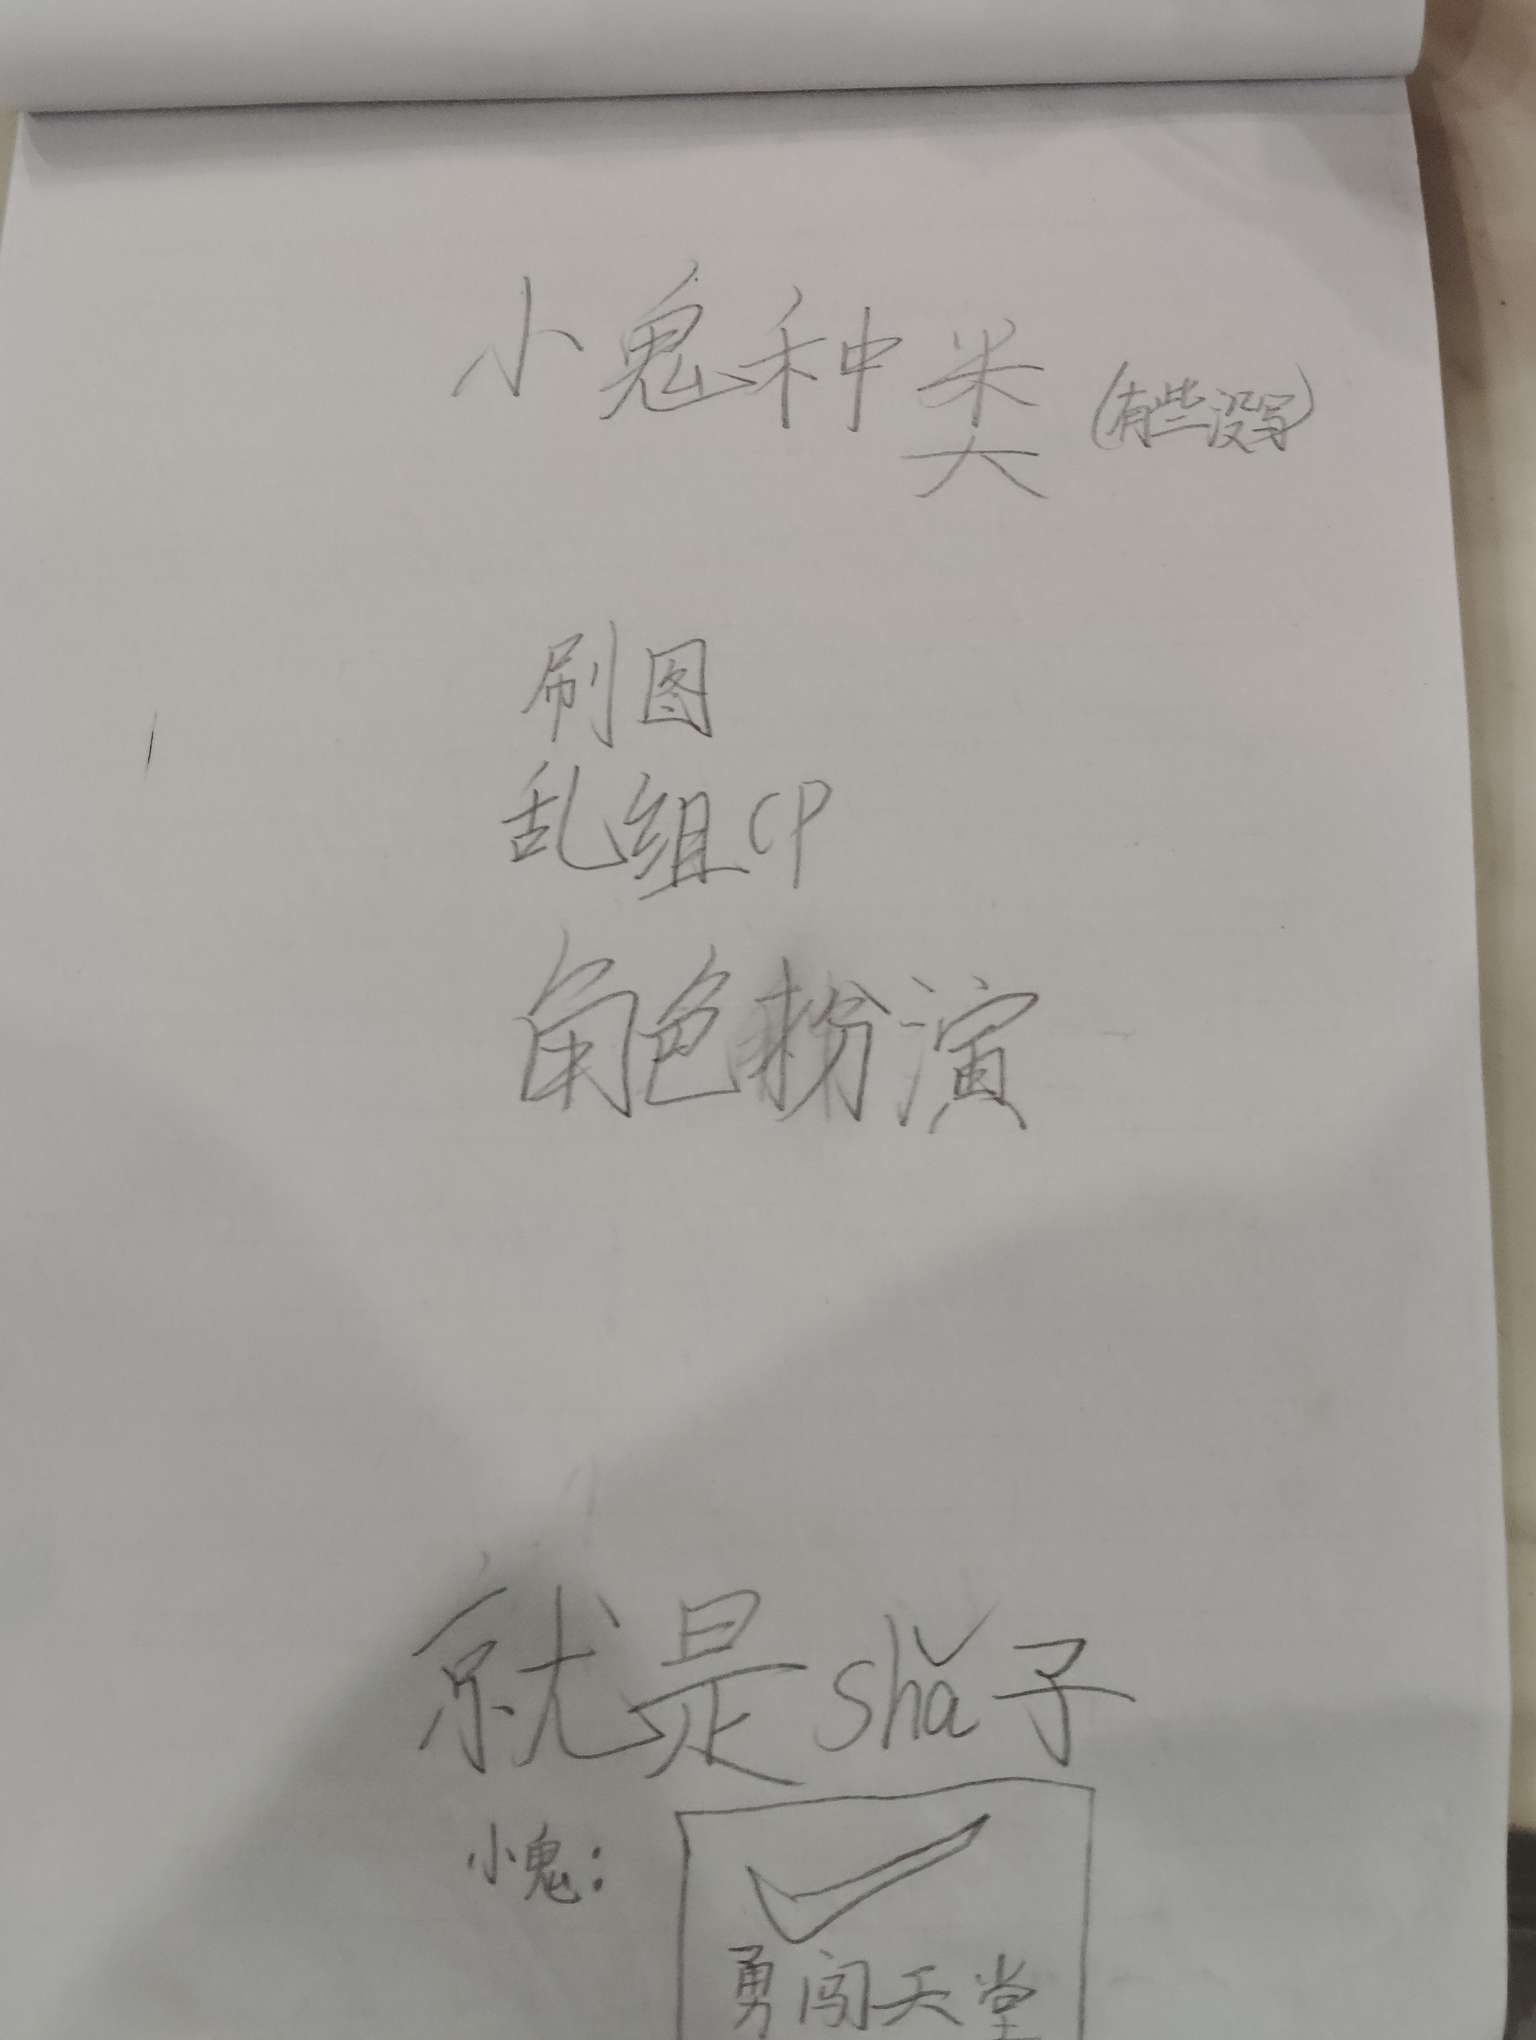 小鬼种类(有些没写)
刷图
乱组CP
角色扮演
就是shǎ子
小鬼:
勇闯天堂